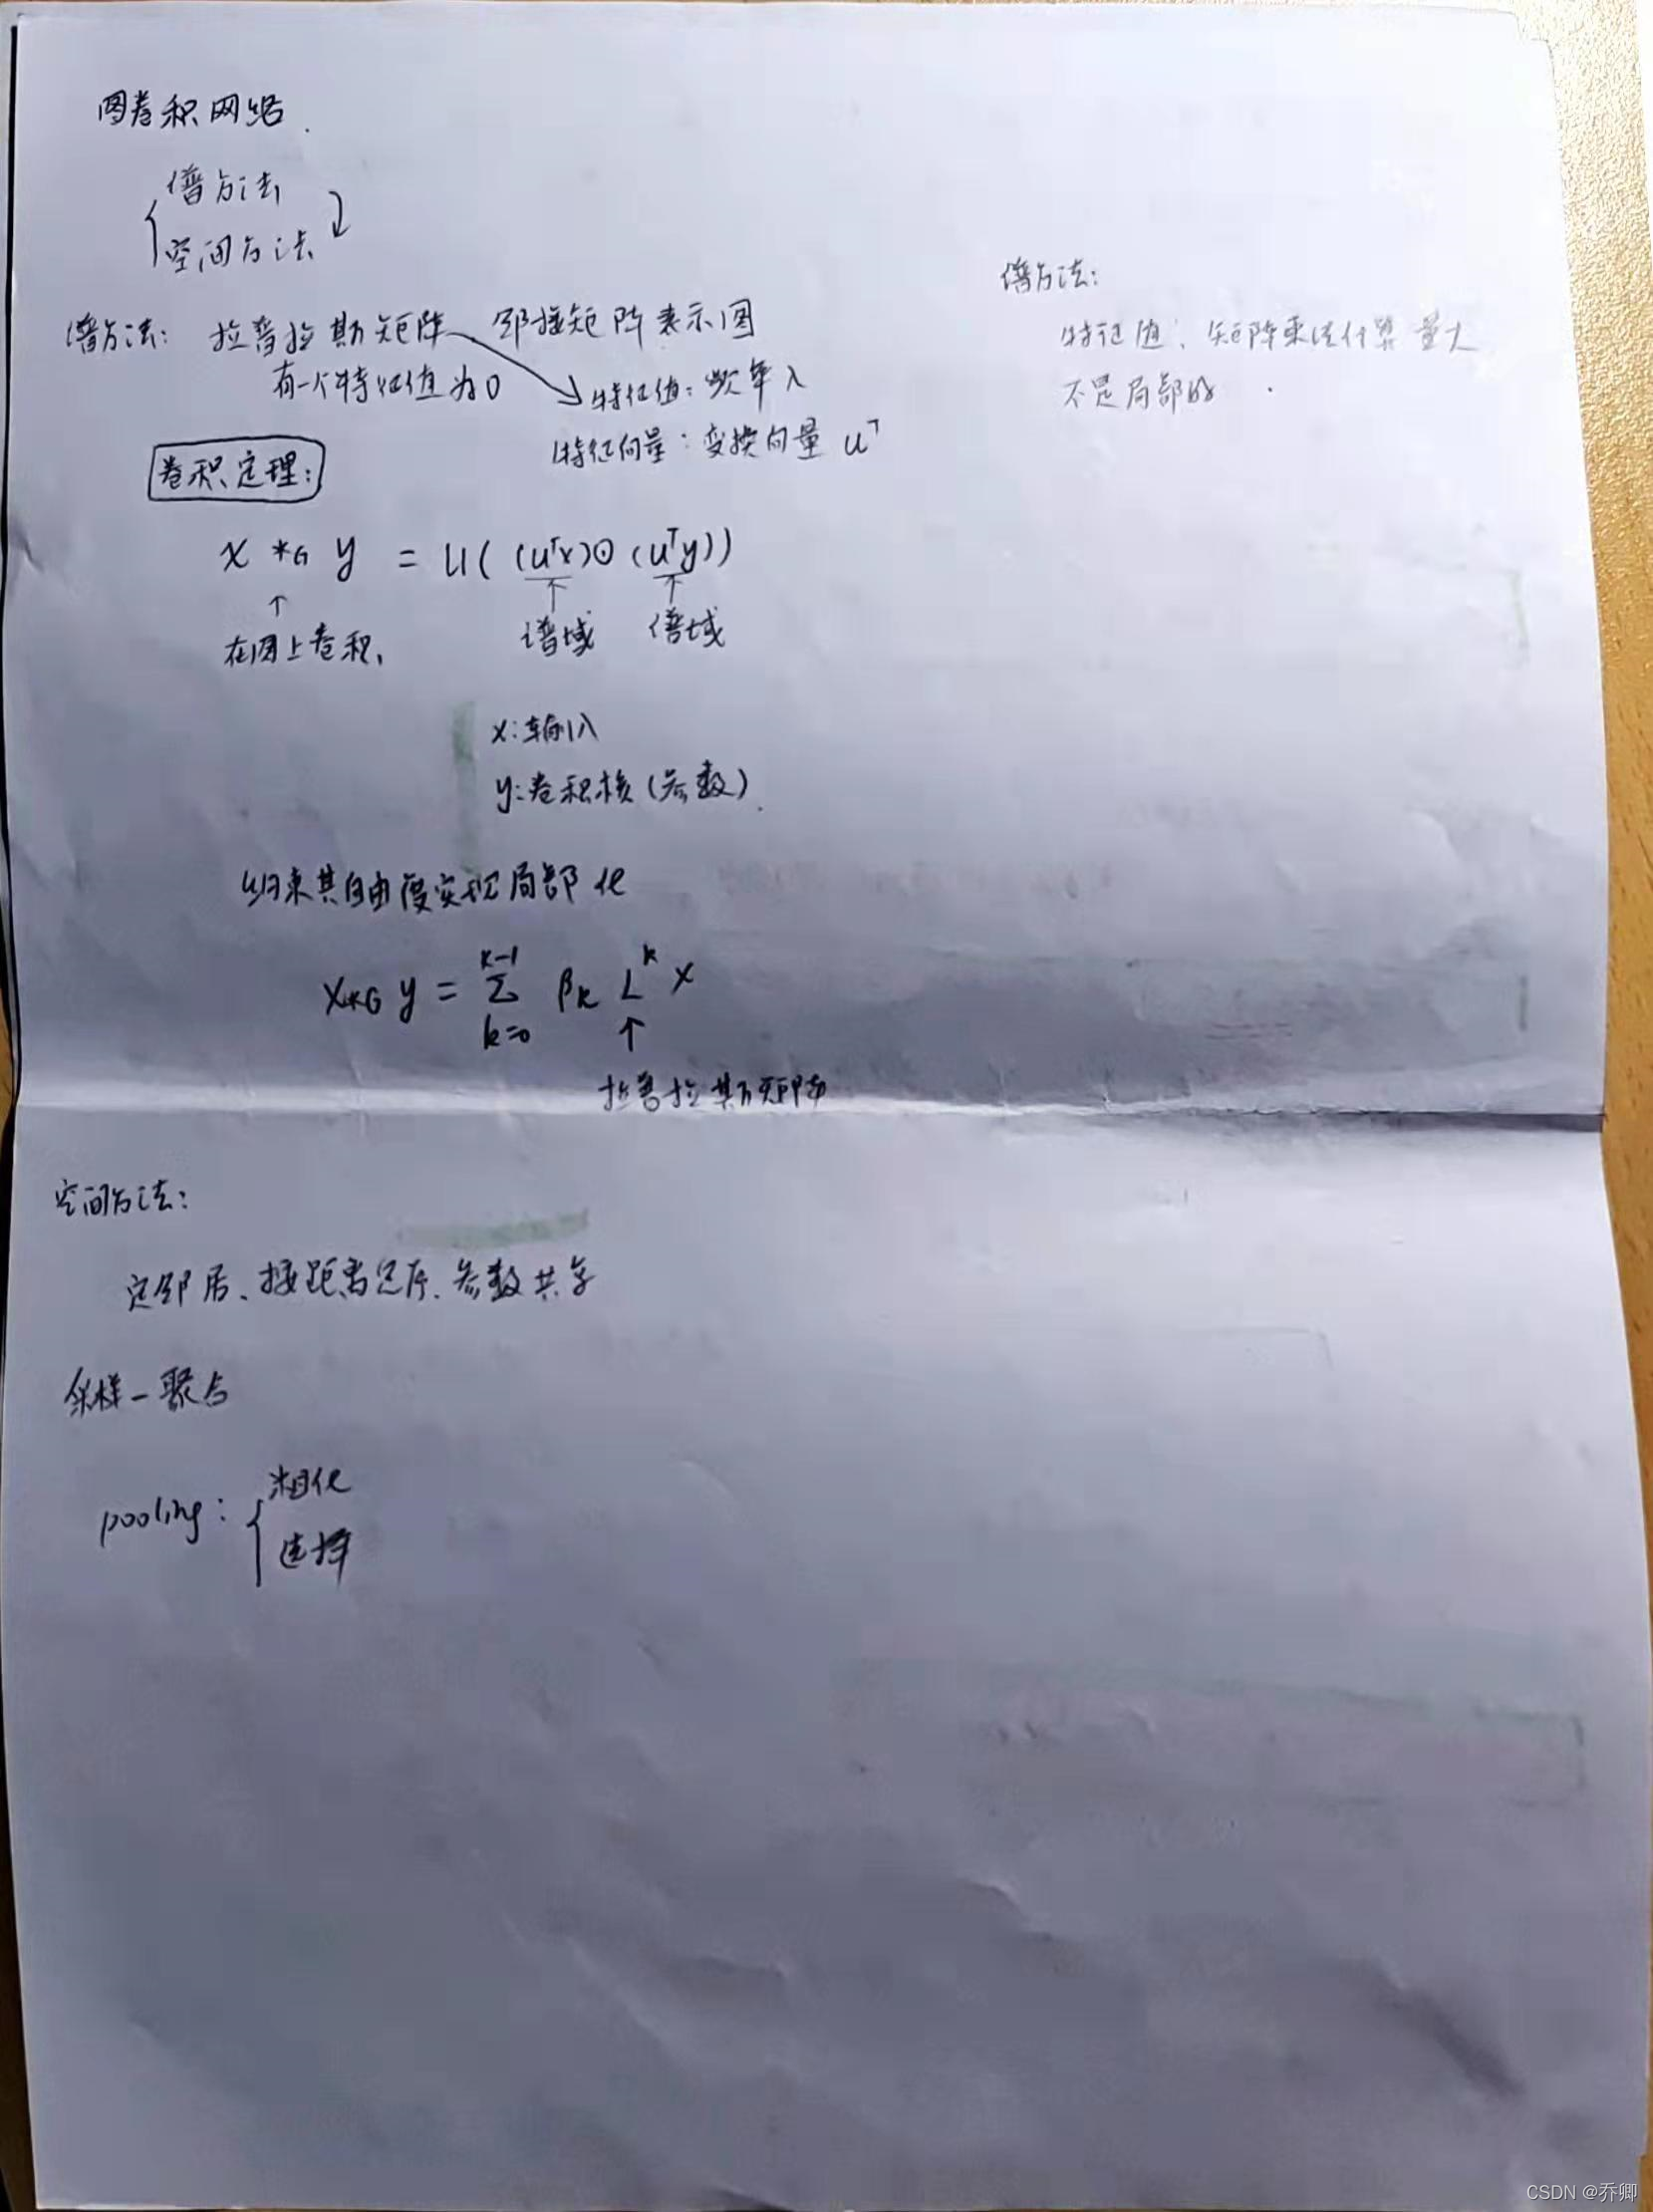 图卷积网络.
谱方法
空间方法
谱方法: 拉普拉斯矩阵 邻接矩阵表示图
有一个特征值为0
特征值: 频率 λ
特征向量: 变换向量 U^T
卷积定理:
x *G y = U((U^T x)⊙(U^T y))
↑ ↑ ↑
在图上卷积, 谱域 谱域
x: 输入
y: 卷积核(参数).
约束其自由度实现局部化
x *G y = Σ_{k=0}^{K-1} β_k L^k x
↑
拉普拉斯矩阵
谱方法:
特征值、矩阵乘法计算量大
不是局部的.
空间方法:
定邻居、按距离定序、参数共享
采样-聚合
pooling:
粗化
选择
CSDN @乔卿